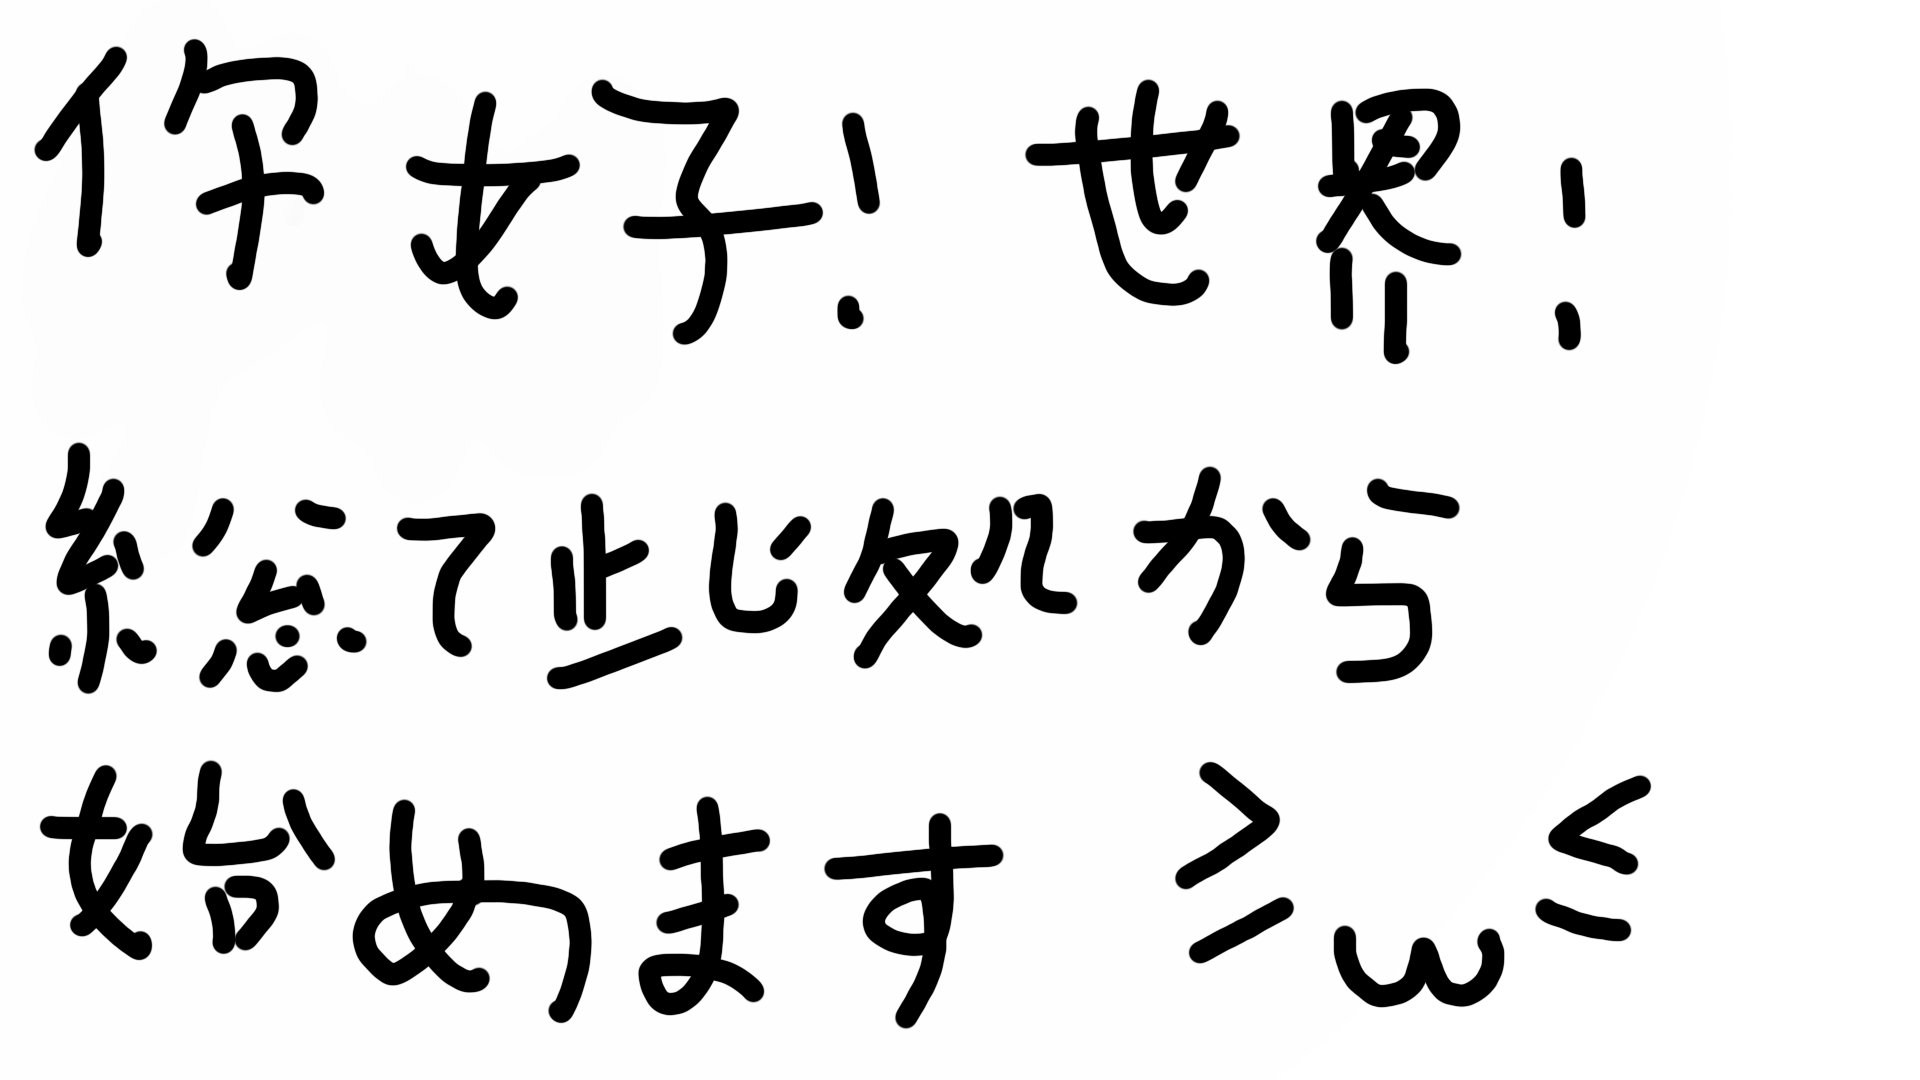 你好！世界！
総て此処から
始めます ≥ω≤